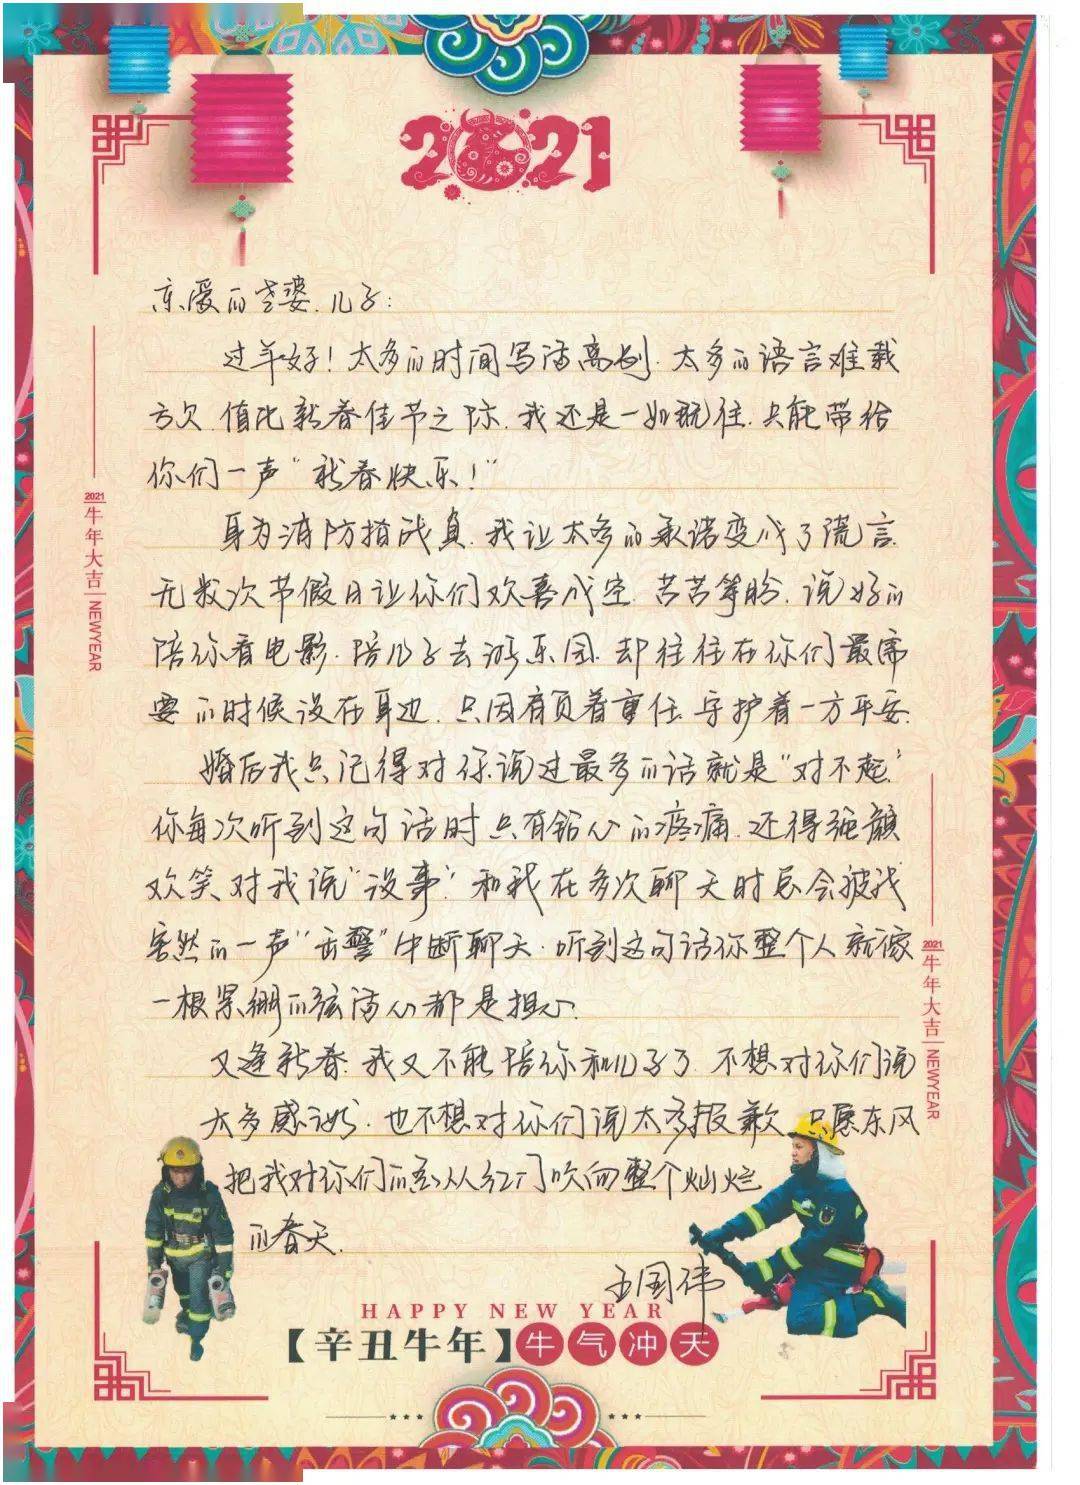 2021
亲爱的老婆.儿子:
过年好!太多的时间写满离别.太多的语言难载
方欠.值此新春佳节之际.我还是一如既往.只能带给
你们一声"新春快乐!"
身为消防指战员.我让太多的承诺变成了谎言.
无数次节假日让你们欢喜成空.苦苦等盼.说好的
陪你看电影.陪儿子去游乐园.却往往在你们最需
要的时候没在身边.只因肩负着重任.守护着一方平安.
婚后我只记得对你说过最多的话就是"对不起."
你每次听到这句话时只有钻心的疼痛.还得强颜
欢笑对我说"没事."和我在多次聊天时总会被我
突然的一声"出警"中断聊天.听到这句话你整个人就像
一根紧绷的弦满心都是担心.
又逢新春.我又不能陪你和儿子了.不想对你们说
太多感谢.也不想对你们说太多报歉.只愿东风
把我对你们的 从红门吹向整个灿烂
的春天.
王国伟
2021
牛年大吉
NEWYEAR
2021
牛年大吉
NEWYEAR
HAPPY NEW YEAR
【辛丑牛年】牛气冲天